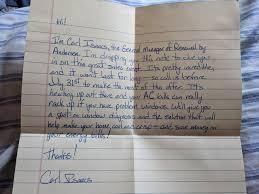 Hi!
I'm Carl Isaacs, the General Manager at Renewal by
Andersen. I'm dropping you this note to clue you
in on this great sales event. It's pretty incredible,
and it won't last for long - so call us before
July 31st to make the most of the offer. It's
heating up out there and your AC bills can really
rack up if you have problem windows. We'll give you
a spot-on window diagnosis and the solution that will
help make your home cool and cozy - and save money on
your energy bills!
Thanks!
Carl Isaacs